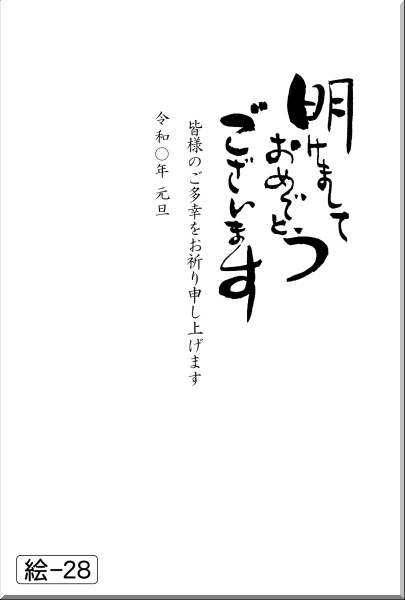 明けまして
おめでとう
ございます
皆様のご多幸をお祈り申し上げます
令和〇年 元旦
絵-28